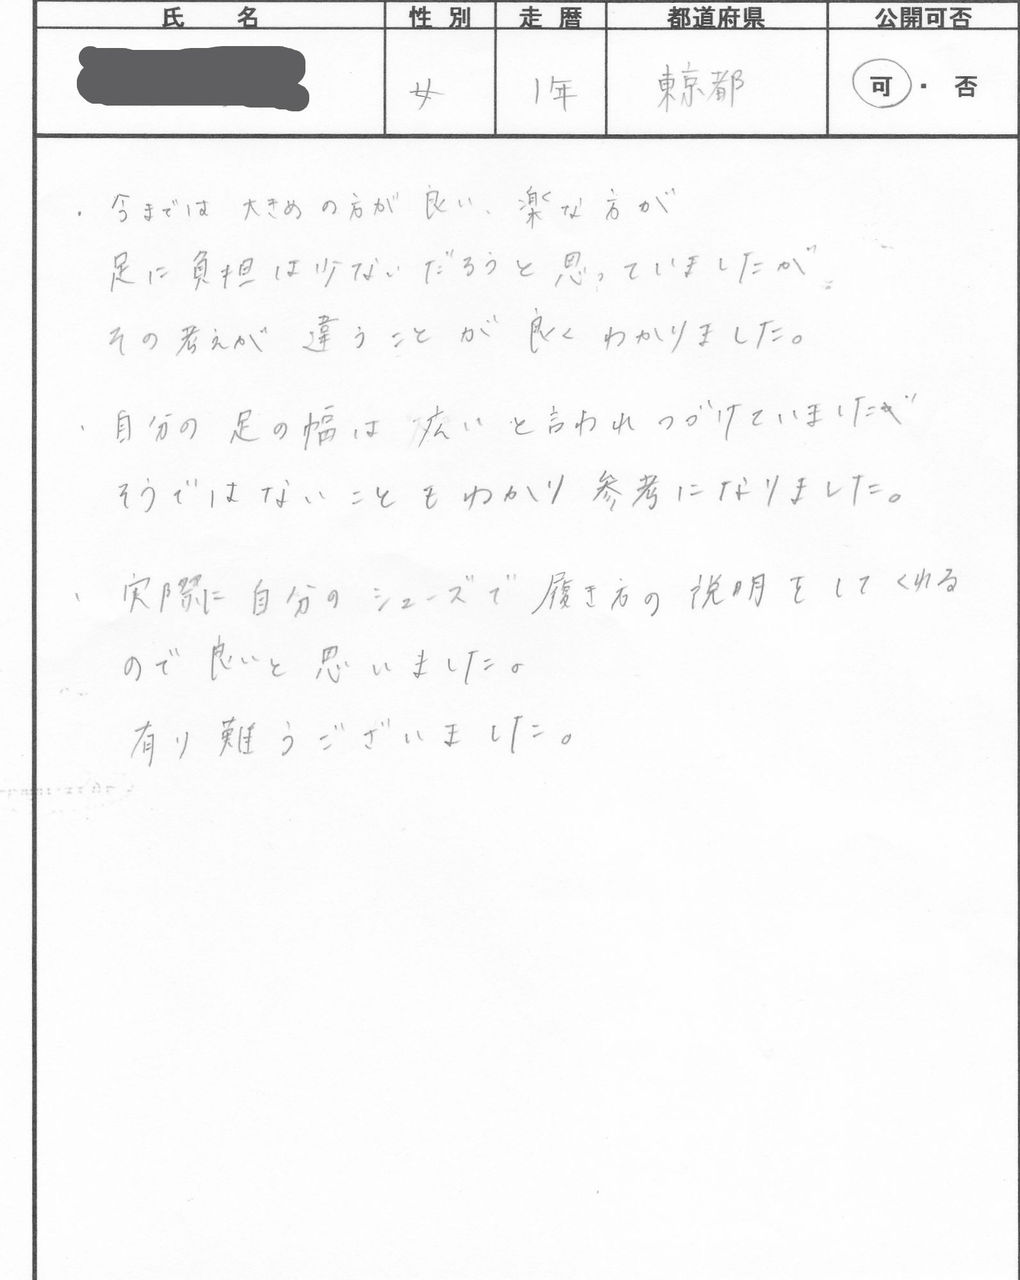 氏 名 性別 走暦 都道府県 公開可否
女 1年 東京都 可・否
・今までは 大きめの方が良い、楽な方が
足に負担は少ないだろうと思っていましたが、
その考えが 違うことが 良くわかりました。
・自分の足の幅は 広いと言われつづけていましたが
そうではないこともわかり 参考になりました。
・実際に自分のシューズで 履き方の説明をしてくれる
ので良いと思いました。
有り難うございました。